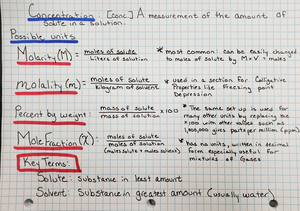 Concentration [conc.] A measurement of the amount of
solute in a solution.
Possible units
Molarity (M) = moles of solute / Liters of solution * most common: can be easily changed
to moles of solute by M×V = moles
molality (m) = moles of solute / Kilogram of solvent * used in a section for Colligative
Properties like Freezing point
Depression
Percent by weight: mass of solute / mass of solution × 100 * The same set up is used for
many other units by replacing the
×100 with other values such as
1,000,000 gives parts per million (ppm)
Mole Fraction (X) = moles of solute / moles of solution * has no units, written in decimal
(moles solute + moles solvent) form especially useful for
mixtures of gases
Key Terms:
Solute: substance in least amount
Solvent: Substance in greatest amount (usually water)